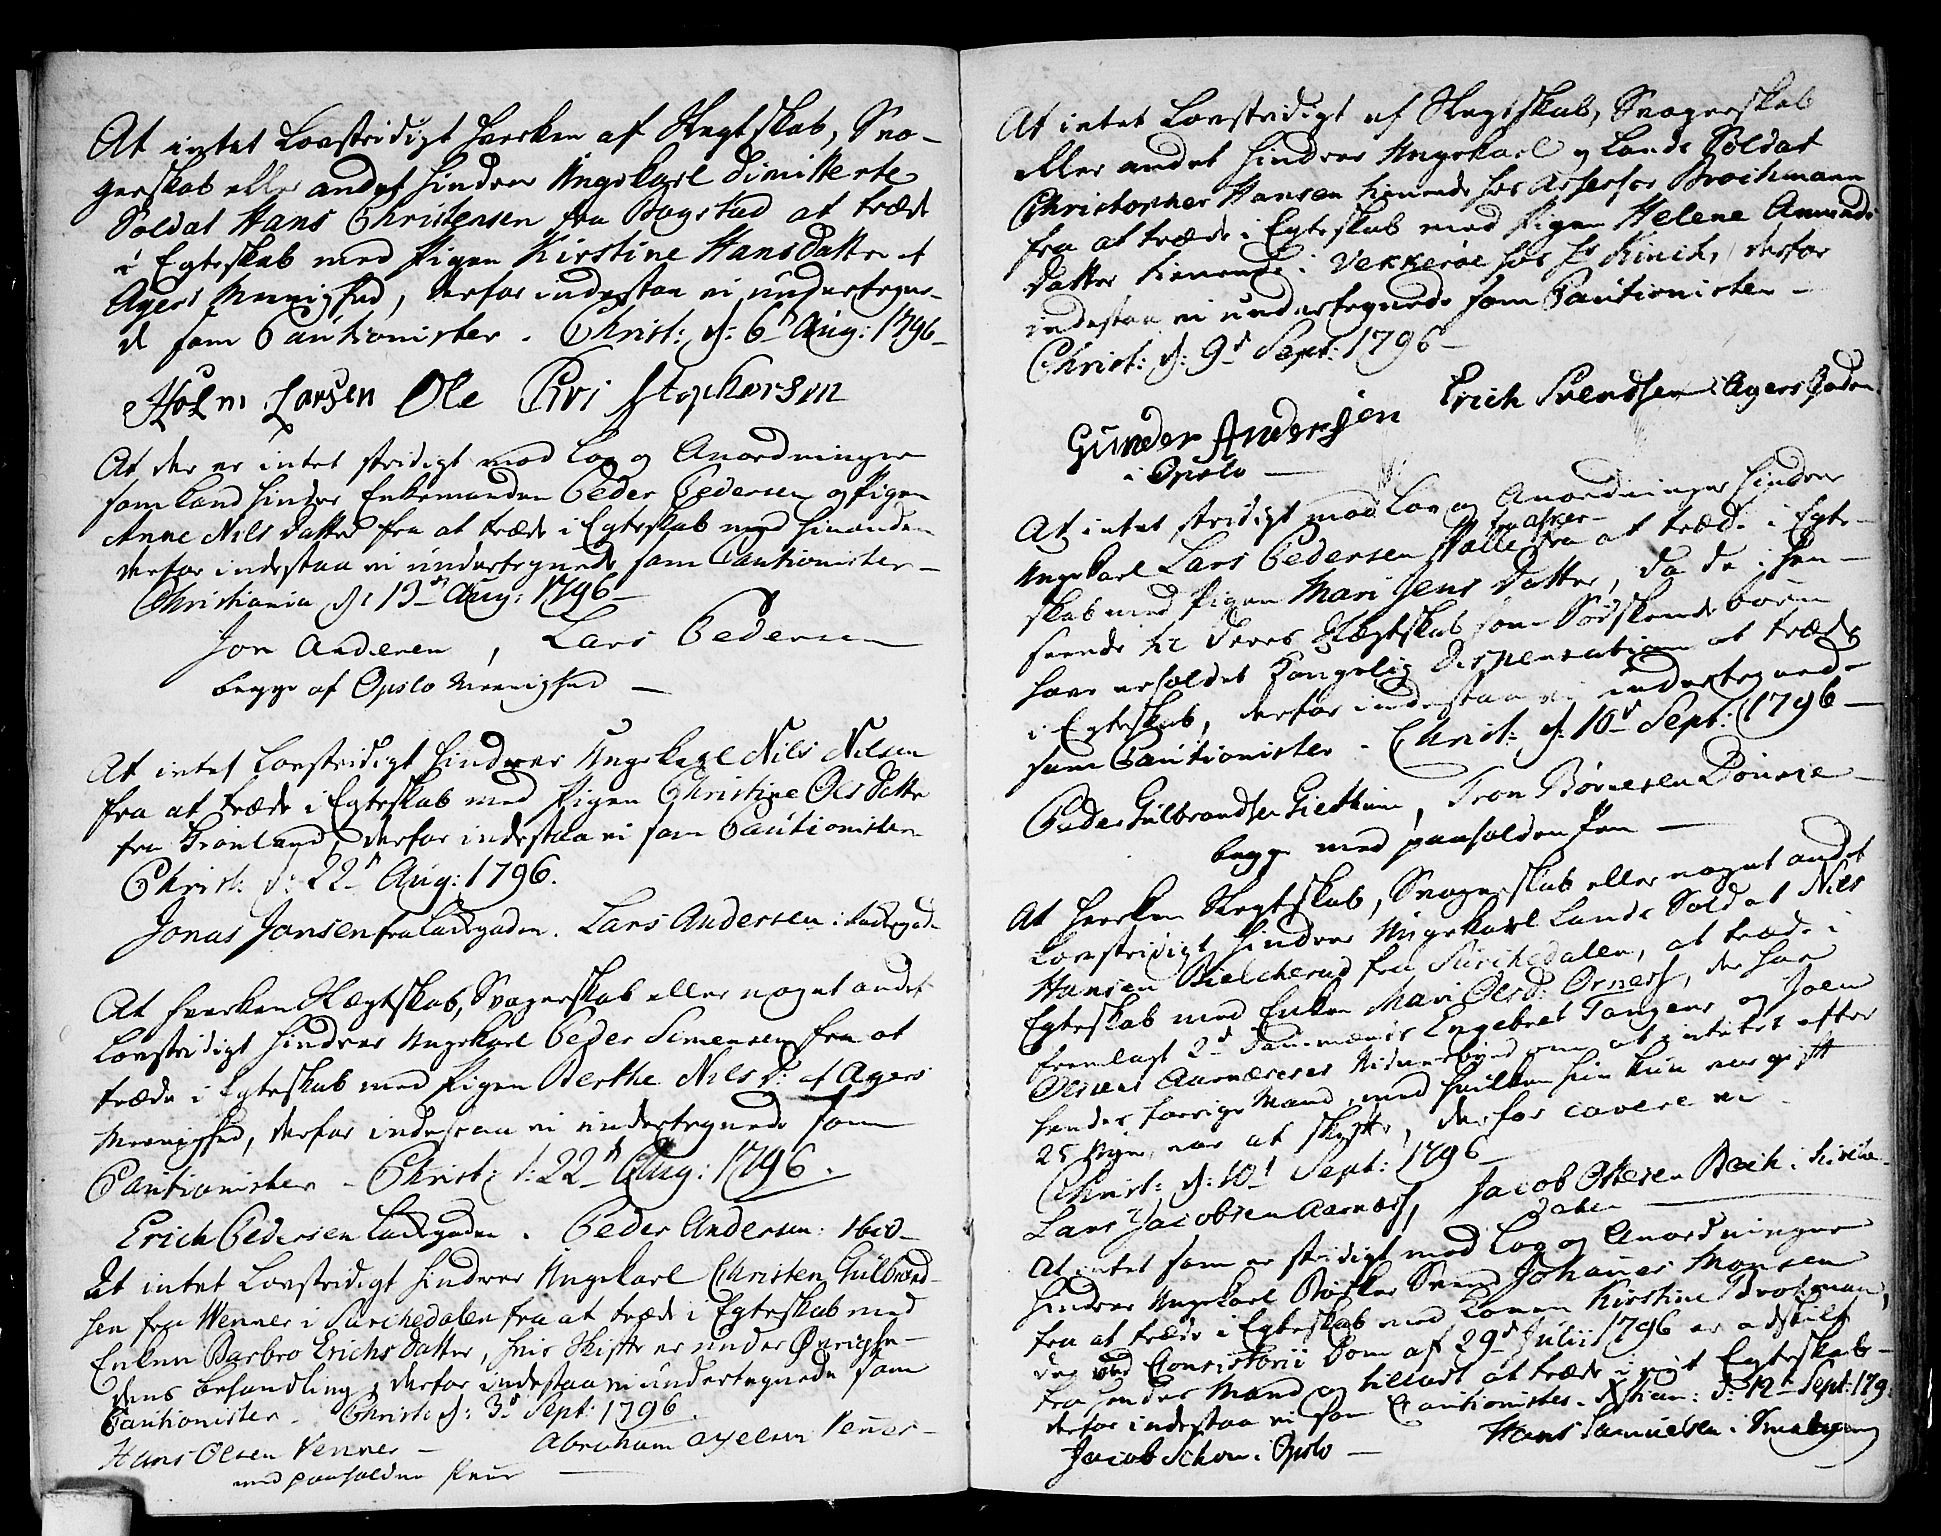 At intet Lovstridigt hverken af Slegtskab, Svo-
gerskab eller andet hindrer Ungekarl dimitterte
Soldat Hans Christensen fra Bogstad at træde
i Egteskab med Pigen Kirstine Hansdatter af
Agers Meenighed, derfor indestaa vi undertegne-
de som Cautionister. Christ: d: 6t Aug: 1796
Holm Larsen Ole Christophersen
At der er intet stridigt mod Lov og Anordninger
som kand hindre Enkemanden Peder Pedersen og Pigen
Anne Nilsdatter fra at træde i Egteskab med hinanden
derfor indestaa vi undertegnede som Cautionister
Christiania d: 13de Aug: 1796
Jon Andersen, Lars Pedersen
begge af Opslo Meenighed
At intet Lovstridigt hindrer Ungekarl Nils Nilsen
fra at træde i Egteskab med Pigen Christine Olsdatter
fra Grønland, derfor indestaa vi som Cautionister
Christ: d: 22d Aug: 1796.
Jonas Jonsen fra Lakkegaden. Lars Andersen i Lakkegade
At hverken Slægtskab, Svogerskab eller noget andet
Lovstridigt hindrer Ungekarl Peder Simensen fra at
træde i Egteskab med Pigen Berthe Nilsd: af Agers
Meenighed, derfor indestaa vi undertegnede som
Cautionister. Christ: d: 22d Aug: 1796.
Erich Pedersen Lakkegaden. Peder Andersen:
At intet Lovstridigt hindrer Ungekarl Christen Gulbrand-
sen fra Wenner i Sørchedalen fra at træde i Egteskab med
Enken Barbro Erichsdatter, hvis Skifte er under Øvrighe-
dens behandling, derfor indestaa vi undertegnede som
Cautionister. Christ: d: 3d Sept: 1796
Hans Olsen Venner Abraham Axelsen Venner
med paaholden Penn
At intet Lovstridigt af Slegtskab, Svogerskab
eller andet hindrer Ungekarl og Lands Soldat
Christopher Hansen tienende hos Assessor Brochmann
fra at træde i Egteskab med Pigen Helene Amunds
datter tienende i Vekkerøe hos Hr Kinch, derfor
indestaa vi undertegnede som Cautionister
Christ: d: 9d Sept: 1796
Gunder Andersen Erich Svendsen i Agers Gaden
i Opslo
At intet stridigt mod Lov og Anordninger hindrer
Ungekarl Lars Pedersen Halle fra Asker fra at træde i Egte-
skab med Pigen Mari Jensdatter, da de i hen-
seende til deres Slægtskab som Sødskendebørn
have erholdet Kongelig Dispensation at træde
i Egteskab, derfor indestaa vi undertegnede
som Cautionister. Christ: d: 10d Sept: 1796
Peder Gulbrandsen Giethuus, Tron Børnesen
begge med paaholden Pen
At hverken Slegtskab, Svogerskab eller noget andet
Lovstridigt hindrer Ungekarl Lands Soldat Nils
Hansen Bielcherud fra Sørchedalen, at træde i
Egteskab med Enken Mari Olsd: Ornæss, der har
fremlagt 2d Dannemænds Engebret Tangens og Joen
Olsens Aarnæsses Vidnesbyrd om at intet efter
hendes forrige Mand, med hvilken hun kun var gift
25 Uger, var at skifte, derfor cavere vi
Christ: d: 10d Sept: 1796
Lars Jacobsen Aarnæss, Jacob Ottesen Bech i Sørche-
dalen
At intet som er stridigt mod Lov og Anordninger
hindrer Ungekarl Bødker Svend Johannes Monsen
fra at træde i Egteskab med Konen Kirstine Brotzman,
der ved Consistorii Dom af 29d Julii 1796 er adskilt
fra hendes Mand og tilladt at træde i nyt Egteskab
derfor indestaa vi som Cautionister. Xstian: d: 12t Sept: 179
Jacob Schou i Opslo Hans Samuelsen i